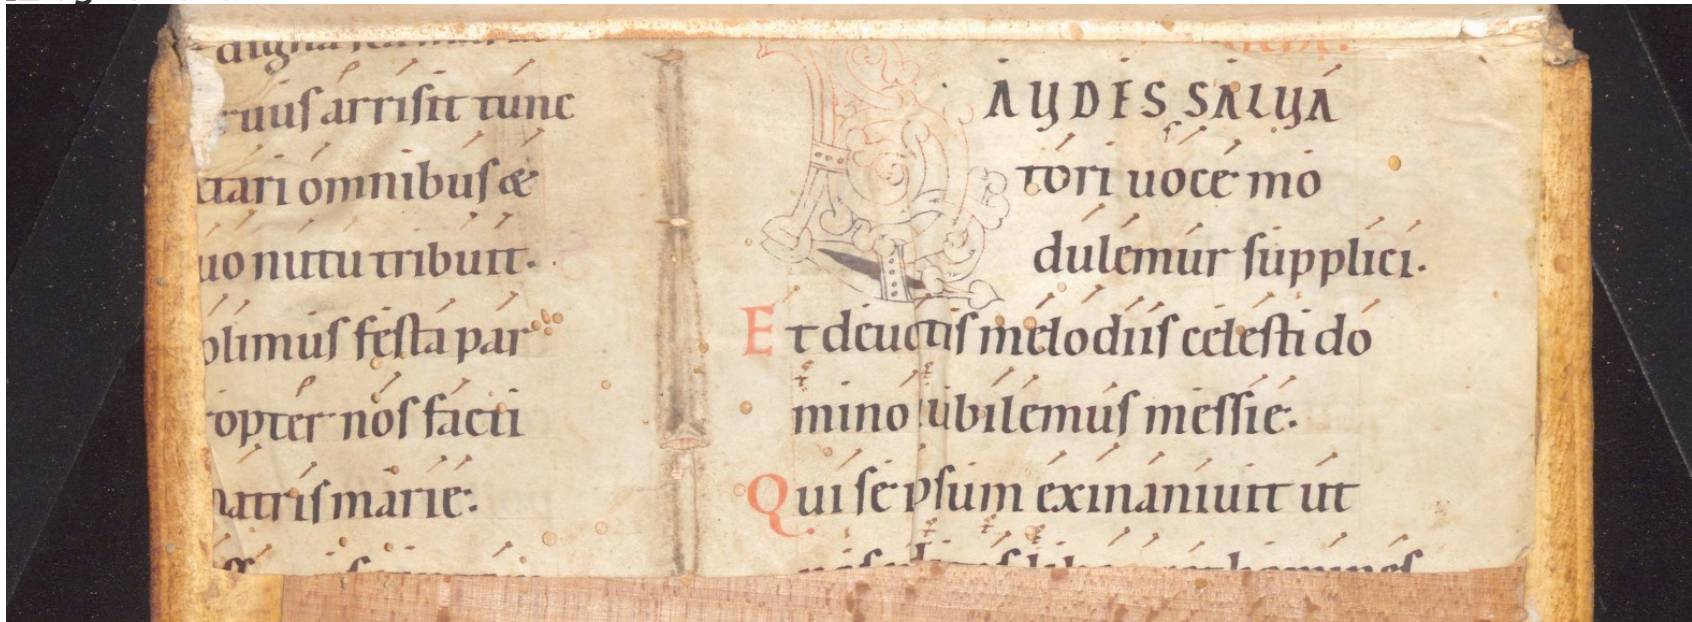 digna
ruus arrisit tunc
tari omnibus &
uo nutu tribuit.
olimus festa par
ropter nos facti
matris marie:
LAUDES SALUA
tori uoce mo
dulemur supplici.
Et deuotis melodiis celesti do
mino iubilemus messie.
Qui se ipsum exinaniuit ut
homines